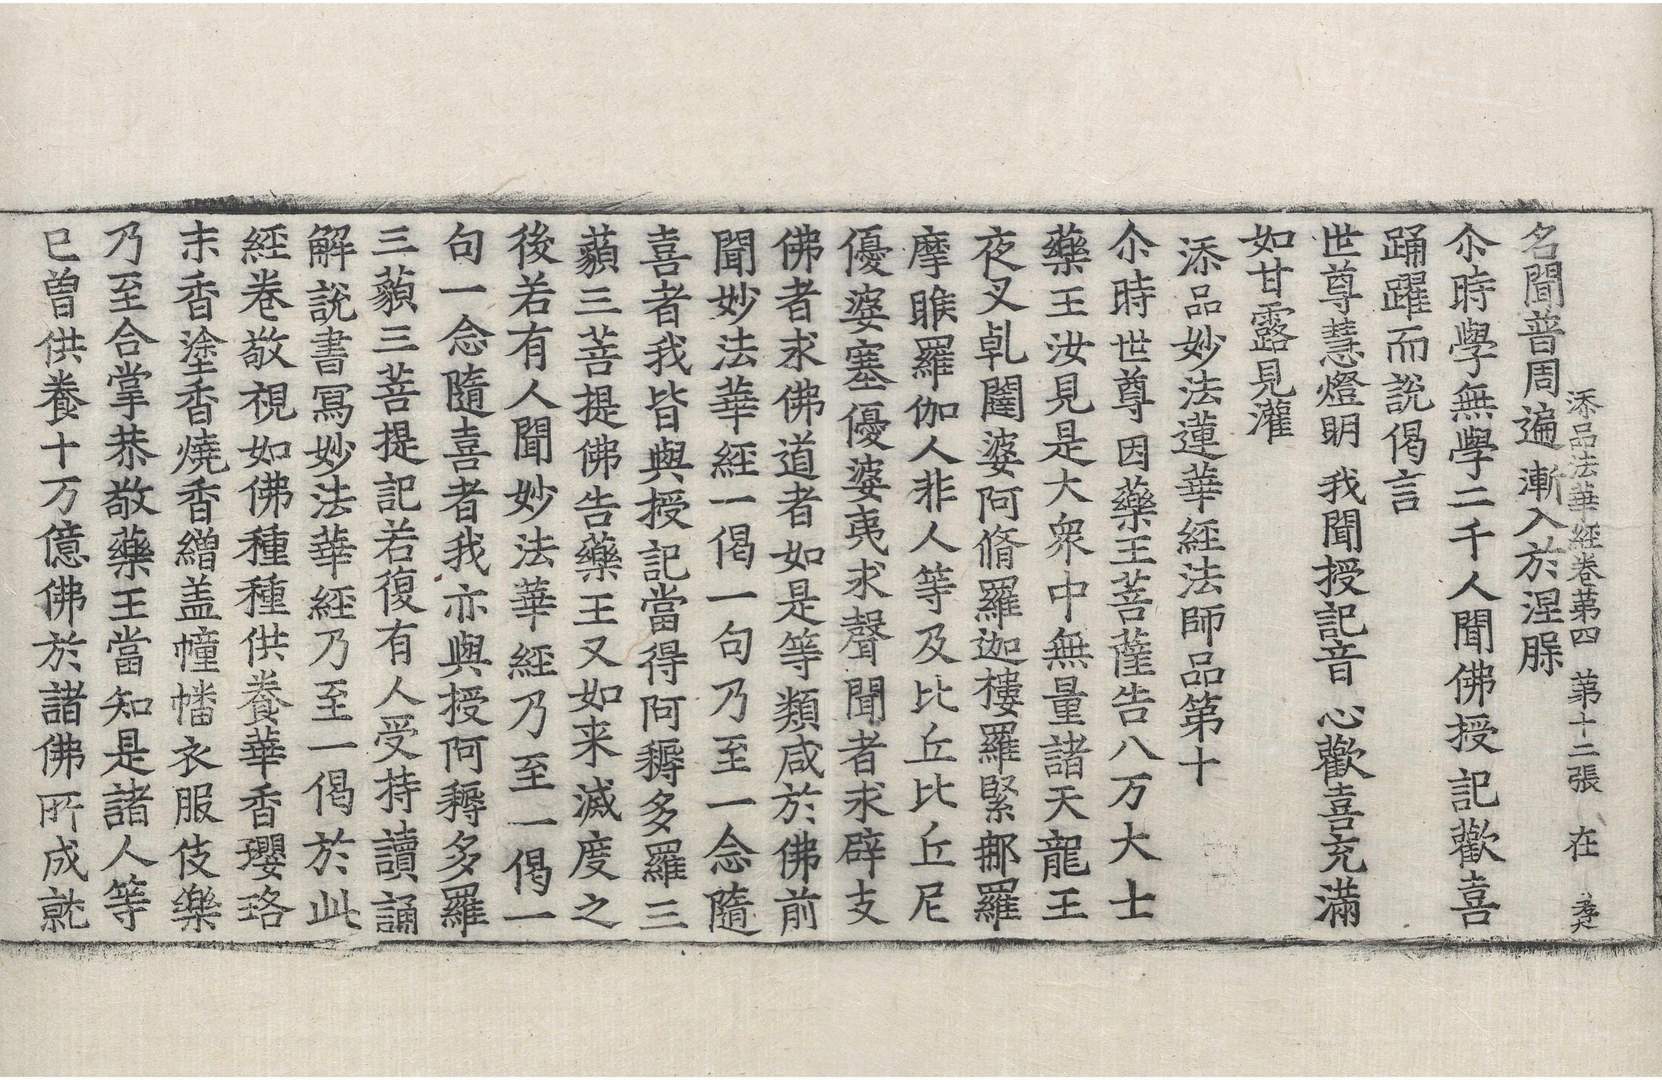 添品法華經卷第四 第十二張 在
名聞普周遍 漸入於涅槃
尒時學無學二千人聞佛授記歡喜
踊躍而說偈言
世尊慧燈明 我聞授記音 心歡喜充滿
如甘露見灌
添品妙法蓮華經法師品第十
尒時世尊因藥王菩薩告八万大士
藥王汝見是大衆中無量諸天龍王
夜叉乹闥婆阿脩羅迦樓羅緊那羅
摩睺羅伽人非人等及比丘比丘尼
優婆塞優婆夷求聲聞者求辟支
佛者求佛道者如是等類咸於佛前
聞妙法華經一偈一句乃至一念隨
喜者我皆與授記當得阿耨多羅三
藐三菩提佛告藥王又如来滅度之
後若有人聞妙法華經乃至一偈一
句一念隨喜者我亦與授阿耨多羅
三藐三菩提記若復有人受持讀誦
解說書寫妙法華經乃至一偈於此
經卷敬視如佛種種供養華香瓔珞
末香塗香燒香繒盖幢幡衣服伎樂
乃至合掌恭敬藥王當知是諸人等
已曾供養十万億佛於諸佛所成就